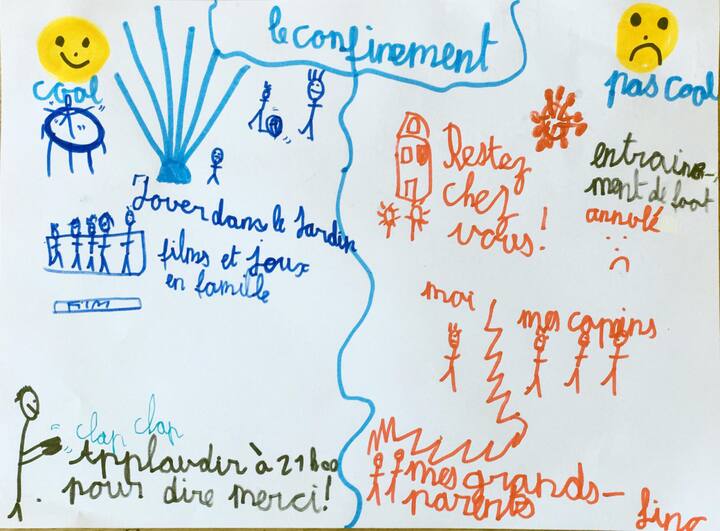 le confinement
cool
Jouer dans le Jardin
films et joux
en famille
clap clap
Applaudir à 21h00
pour dire merci!
pas cool
Restez
chez
vous!
entraine-
ment de foot
annulé
moi
mes copains
mes grands-
parents